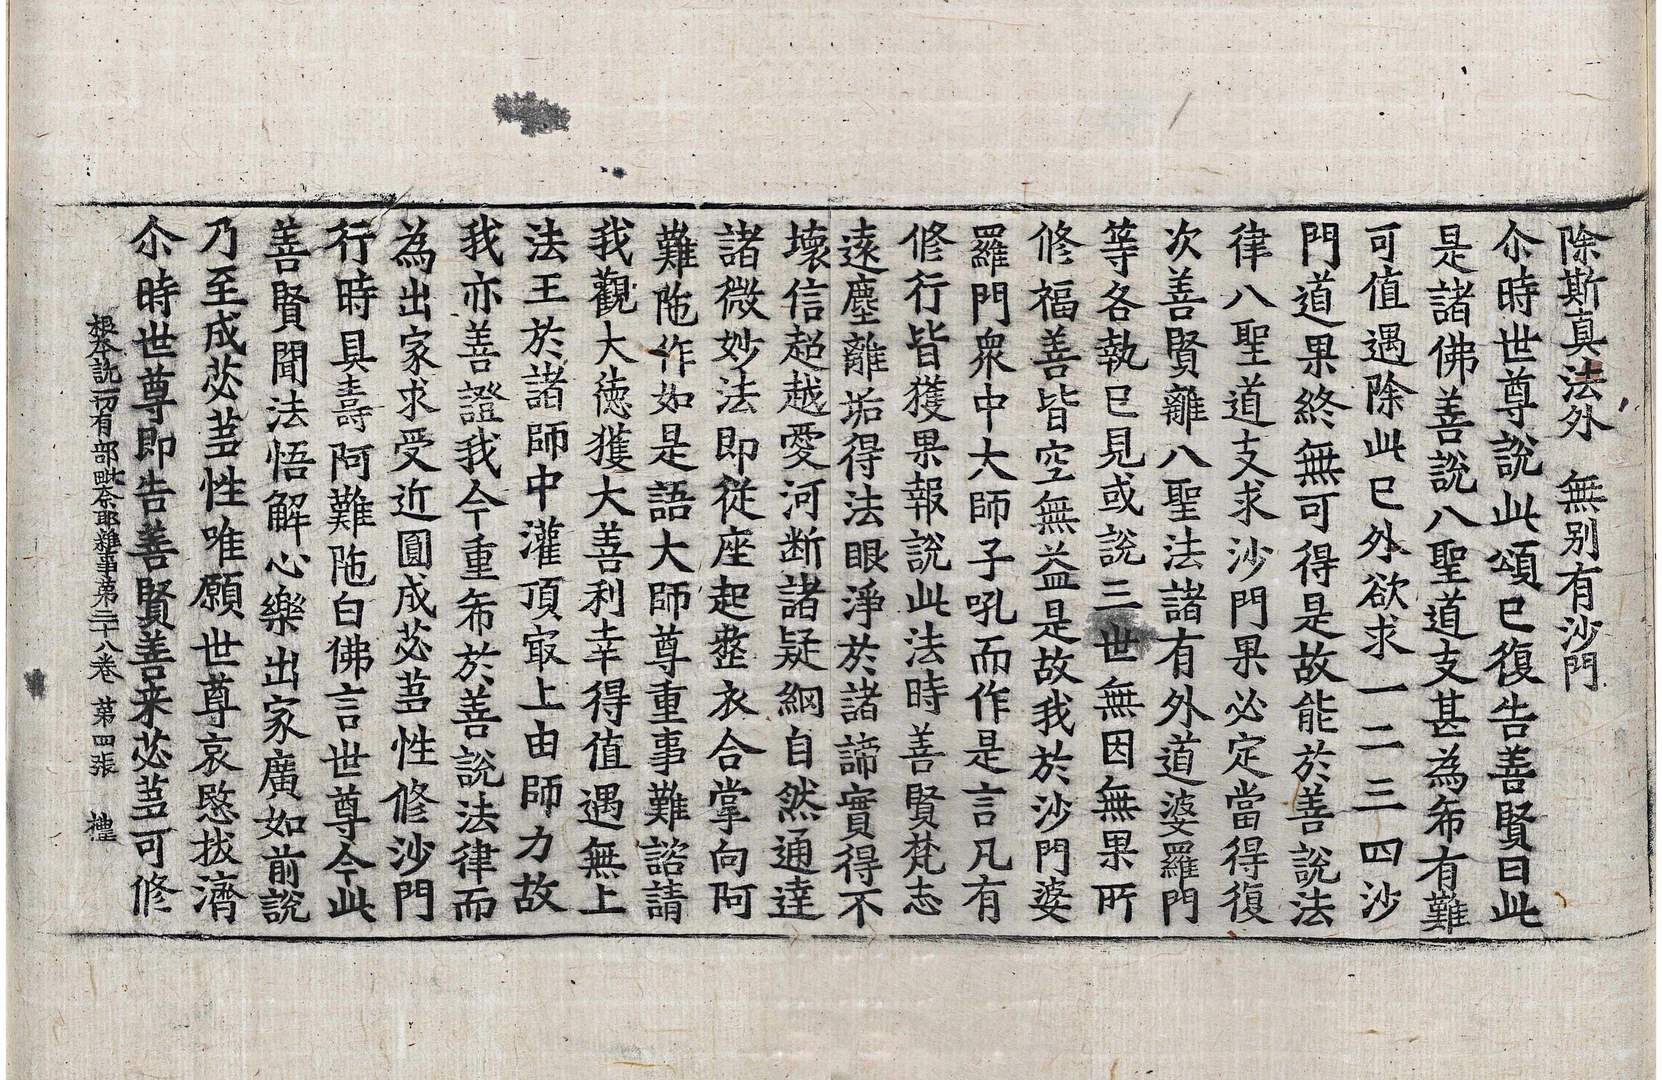 除斯真法外　無别有沙門
尒時世尊說此頌已復告善賢曰此
是諸佛善說八聖道支甚為希有難
可值遇除此已外欲求一二三四沙
門道果終無可得是故能於善說法
律八聖道支求沙門果必定當得復
次善賢離八聖法諸有外道婆羅門
等各執已見或說三世無因無果所
修福善皆空無益是故我於沙門婆
羅門衆中大師子吼而作是言凡有
修行皆獲果報說此法時善賢梵志
遠塵離垢得法眼淨於諸諦實得不
壞信超越愛河断諸疑網自然通達
諸微妙法即從座起整衣合掌向阿
難陁作如是語大師尊重事難諮請
我觀大徳獲大善利幸得值遇無上
法王於諸師中灌頂㝡上由師力故
我亦善證我今重希於善說法律而
為出家求受近圓成苾芻性修沙門
行時具壽阿難陁白佛言世尊今此
善賢聞法悟解心樂出家廣如前說
乃至成苾芻性唯願世尊哀愍拔濟
尒時世尊即告善賢善来苾芻可修
根本說一切有部毗奈耶雜事第三十八卷　第四張　禮